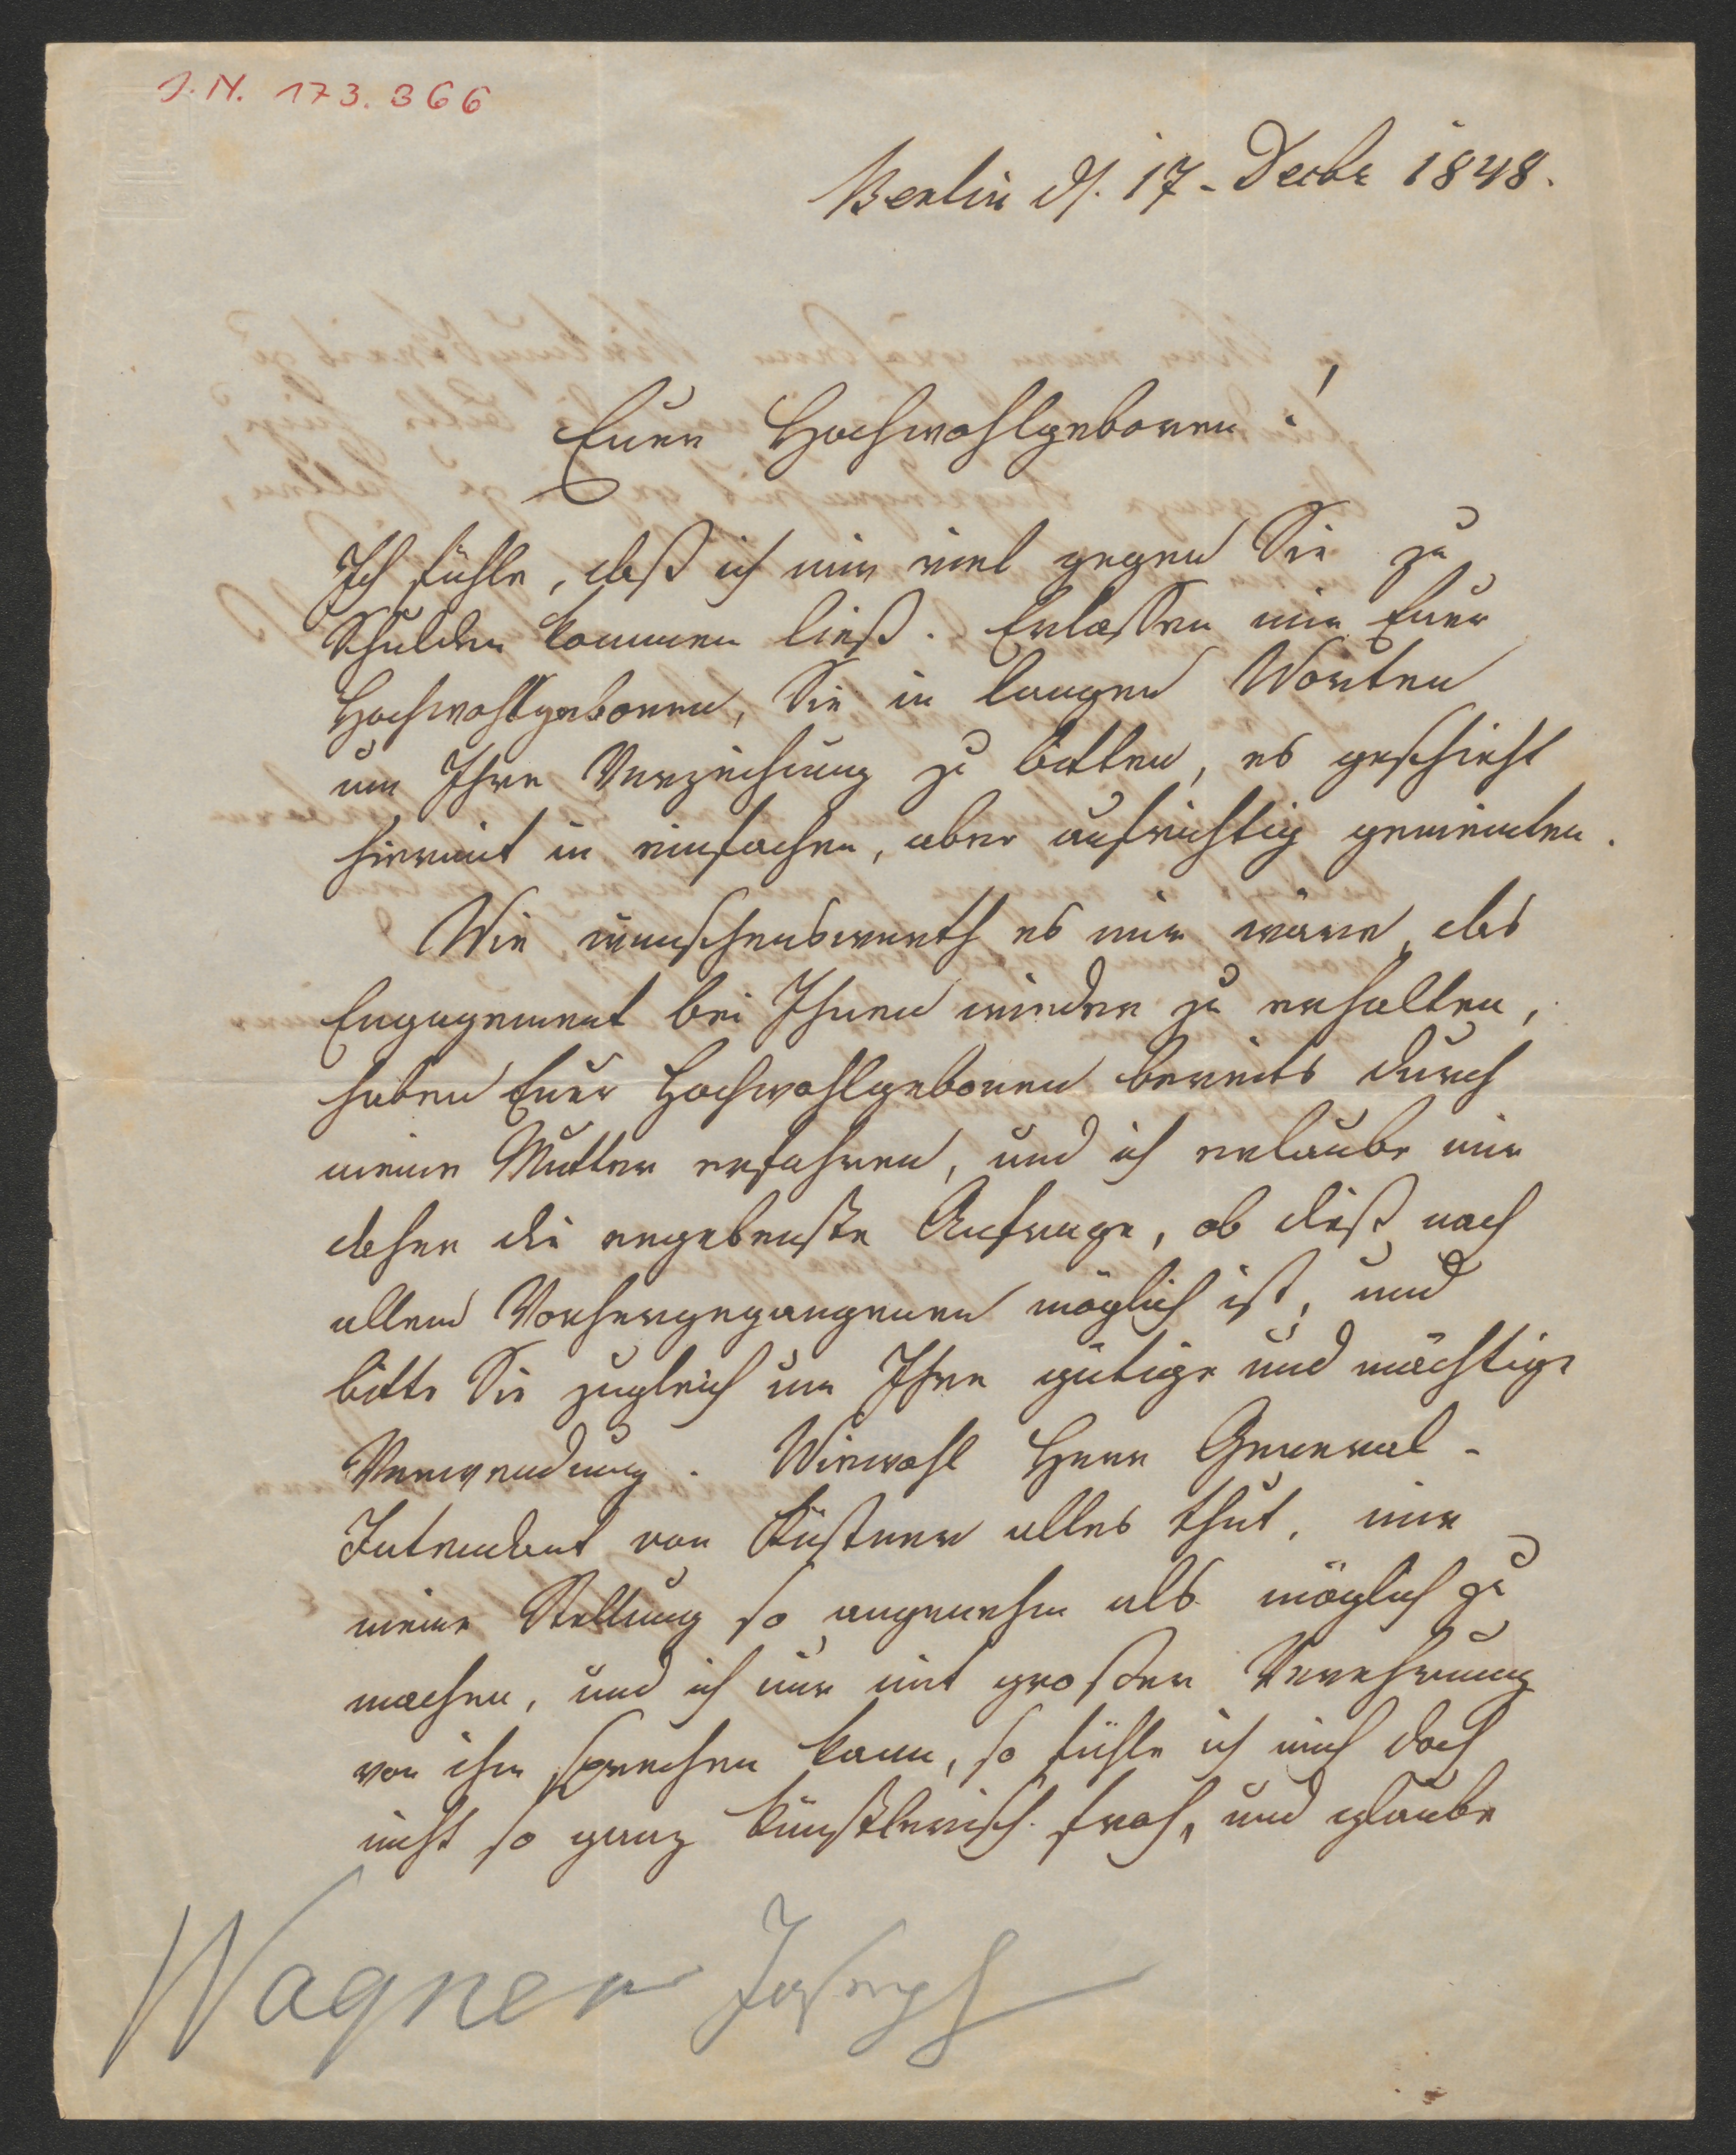 J. N. 173.366
Berlin d. 17. Decbr 1848.
Euer Hochwohlgeboren!
Ich fühle, daß ich mir viel gegen Sie zu
Schulden kommen ließ. Erlassen mir Euer
Hochwohlgeboren, Sie in langen Worten
um Ihre Verzeihung zu bitten, es geschieht
hiermit in einfachen, aber aufrichtig gemeinten.
Wie wünschenswerth es mir wäre, das
Engagement bei Ihnen wieder zu erhalten,
haben Euer Hochwohlgeboren bereits durch
meine Mutter erfahren, und ich erlaube mir
daher die ergebenste Anfrage, ob dieß nach
allem Vorhergegangenen möglich ist, und
bitte Sie zugleich um Ihre gütige und mächtige
Verwendung. Wiewohl Herr General-
Intendant von Küstner alles thut, mir
meine Stellung so angenehm als möglich zu
machen, und ich nur mit großer Verehrung
von ihm sprechen kann, so fühle ich mich doch
nicht so ganz künstlerisch froh, und glaube
Wagner Joseph